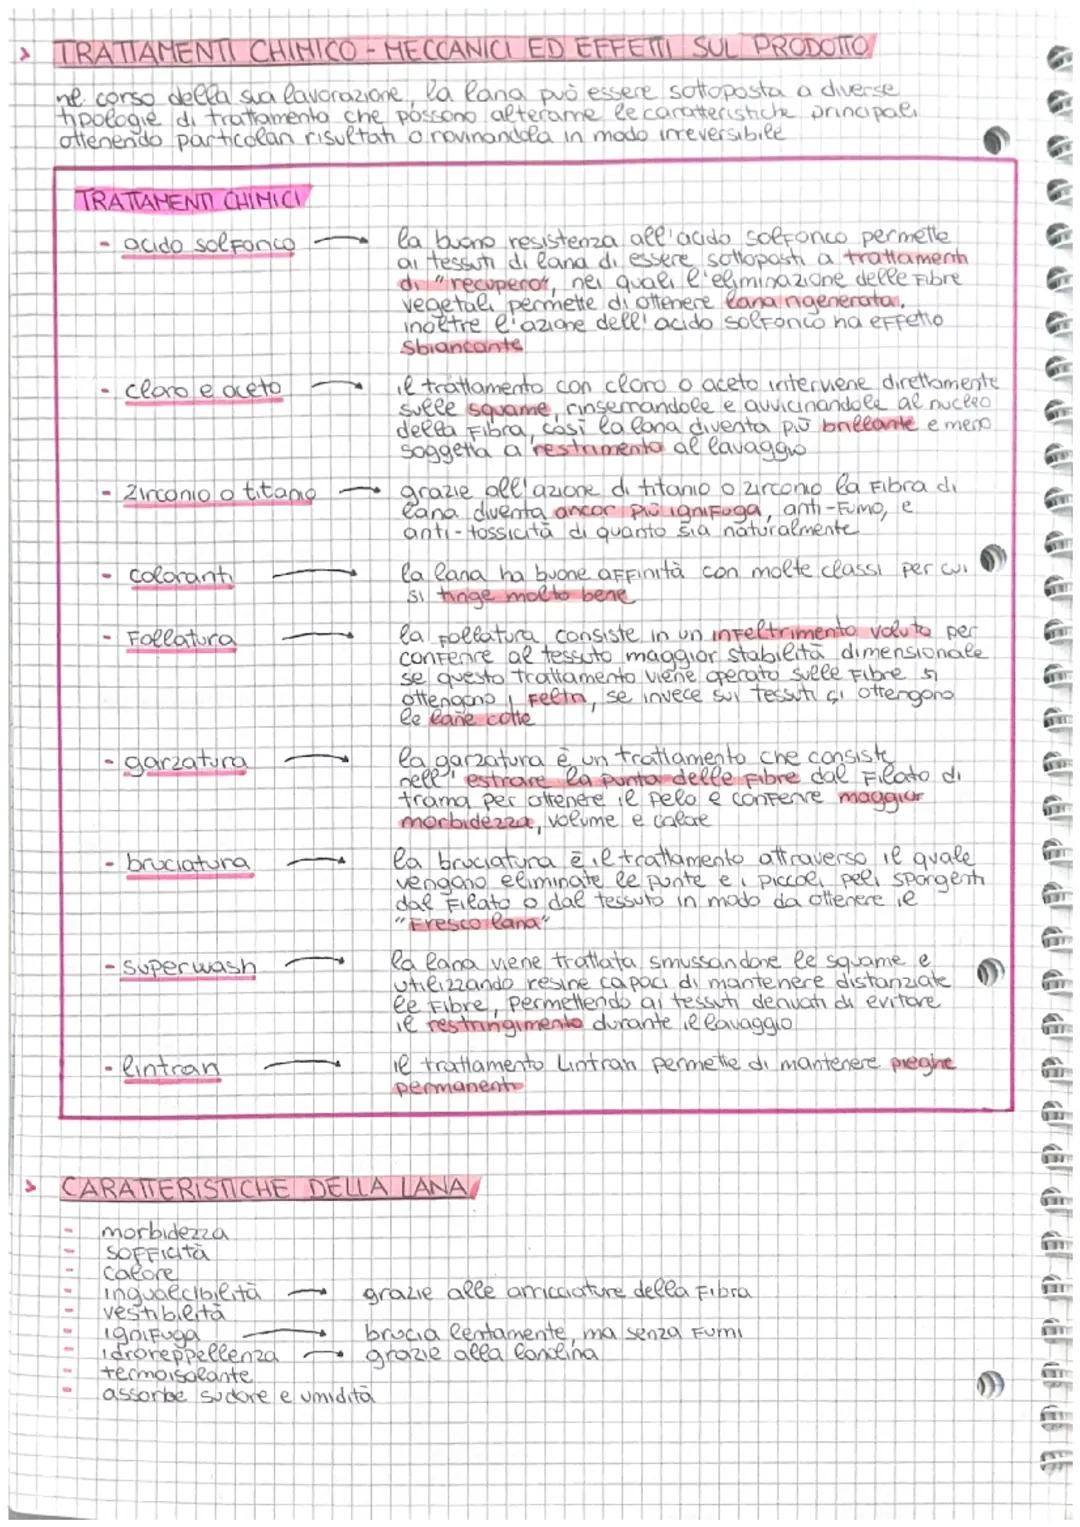 > TRATTAMENTI CHIMICO - MECCANICI ED EFFETTI SUL PRODOTTO
nel corso della sua lavorazione, la lana può essere sottoposta a diverse
tipologie di trattamento che possono alterarne le caratteristiche principali
ottenendo particolari risultati o rovinandola in modo irreversibile
TRATTAMENTI CHIMICI
- acido solforico → la buona resistenza all'acido solforico permette
ai tessuti di lana di essere sottoposti a trattamenti
di "recupero", nei quali l'eliminazione delle fibre
vegetali permette di ottenere lana rigenerata.
inoltre l'azione dell'acido solforico ha effetto
sbiancante
- cloro e aceto → il trattamento con cloro o aceto interviene direttamente
sulle squame, rinserrandole e avvicinandole al nucleo
della fibra, così la lana diventa più brillante e meno
soggetta a restrimento al lavaggio
- zirconio o titanio → grazie all'azione di titanio o zirconio la fibra di
lana diventa ancor più ignifuga, anti-fumo, e
anti-tossicità di quanto sia naturalmente
- coloranti → la lana ha buone affinità con molte classi per cui
si tinge molto bene
- Follatura → la follatura consiste in un infeltrimento voluto per
conferire al tessuto maggior stabilità dimensionale
se questo trattamento viene operato sulle fibre si
ottengono i feltri, se invece sui tessuti si ottengono
le lane cotte
- garzatura → la garzatura è un trattamento che consiste
nell'estrarre la punta delle fibre dal filato di
trama per ottenere il pelo e conferire maggior
morbidezza, volume e calore
- bruciatura → la bruciatura è il trattamento attraverso il quale
vengono eliminate le punte e i piccoli peli sporgenti
dal filato o dal tessuto in modo da ottenere il
"Fresco lana"
- superwash → la lana viene trattata smussandone le squame e
utilizzando resine capaci di mantenere distanziate
le fibre, permettendo ai tessuti derivati di evitare
il restringimento durante il lavaggio
- lintran → il trattamento Lintran permette di mantenere pieghe
permanenti
> CARATTERISTICHE DELLA LANA
- morbidezza
- sofficità
- calore
- ingualcibilità → grazie alle arricciature della fibra
- vestibilità
- ignifuga → brucia lentamente, ma senza fumi
- idroreppellenza → grazie alla lanolina
- termoisolante
- assorbe sudore e umidità